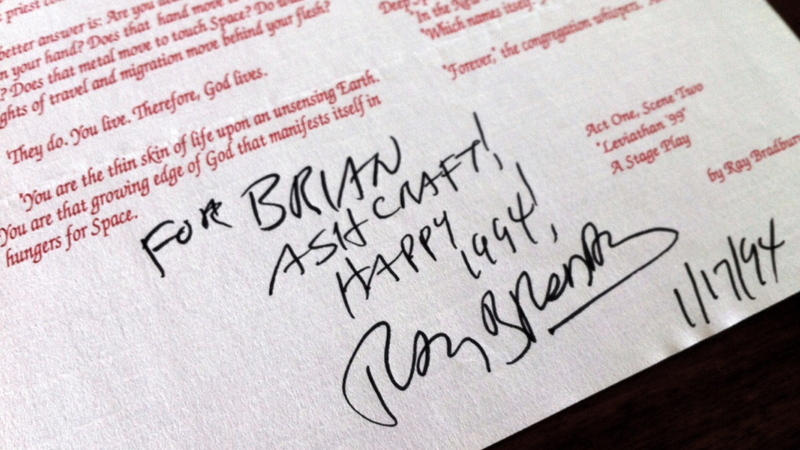 priest
better answer is: Are you
n your hand? Does that hand move
? Does that metal move to touch Space? Do
ghts of travel and migration move behind your flesh?
'They do. You live. Therefore, God lives.
"You are the thin skin of life upon an unsensing Earth.
You are that growing edge of God that manifests itself in
hungers for Space.
Deep
"In the New
"Which names itself
"Forever," the congregation whispers.
Act One, Scene Two
"Leviathan '99"
A Stage Play
by Ray Bradbur
FOR BRIAN
ASHCRAFT!
HAPPY
1994!
Ray Bradbury
1/17/94